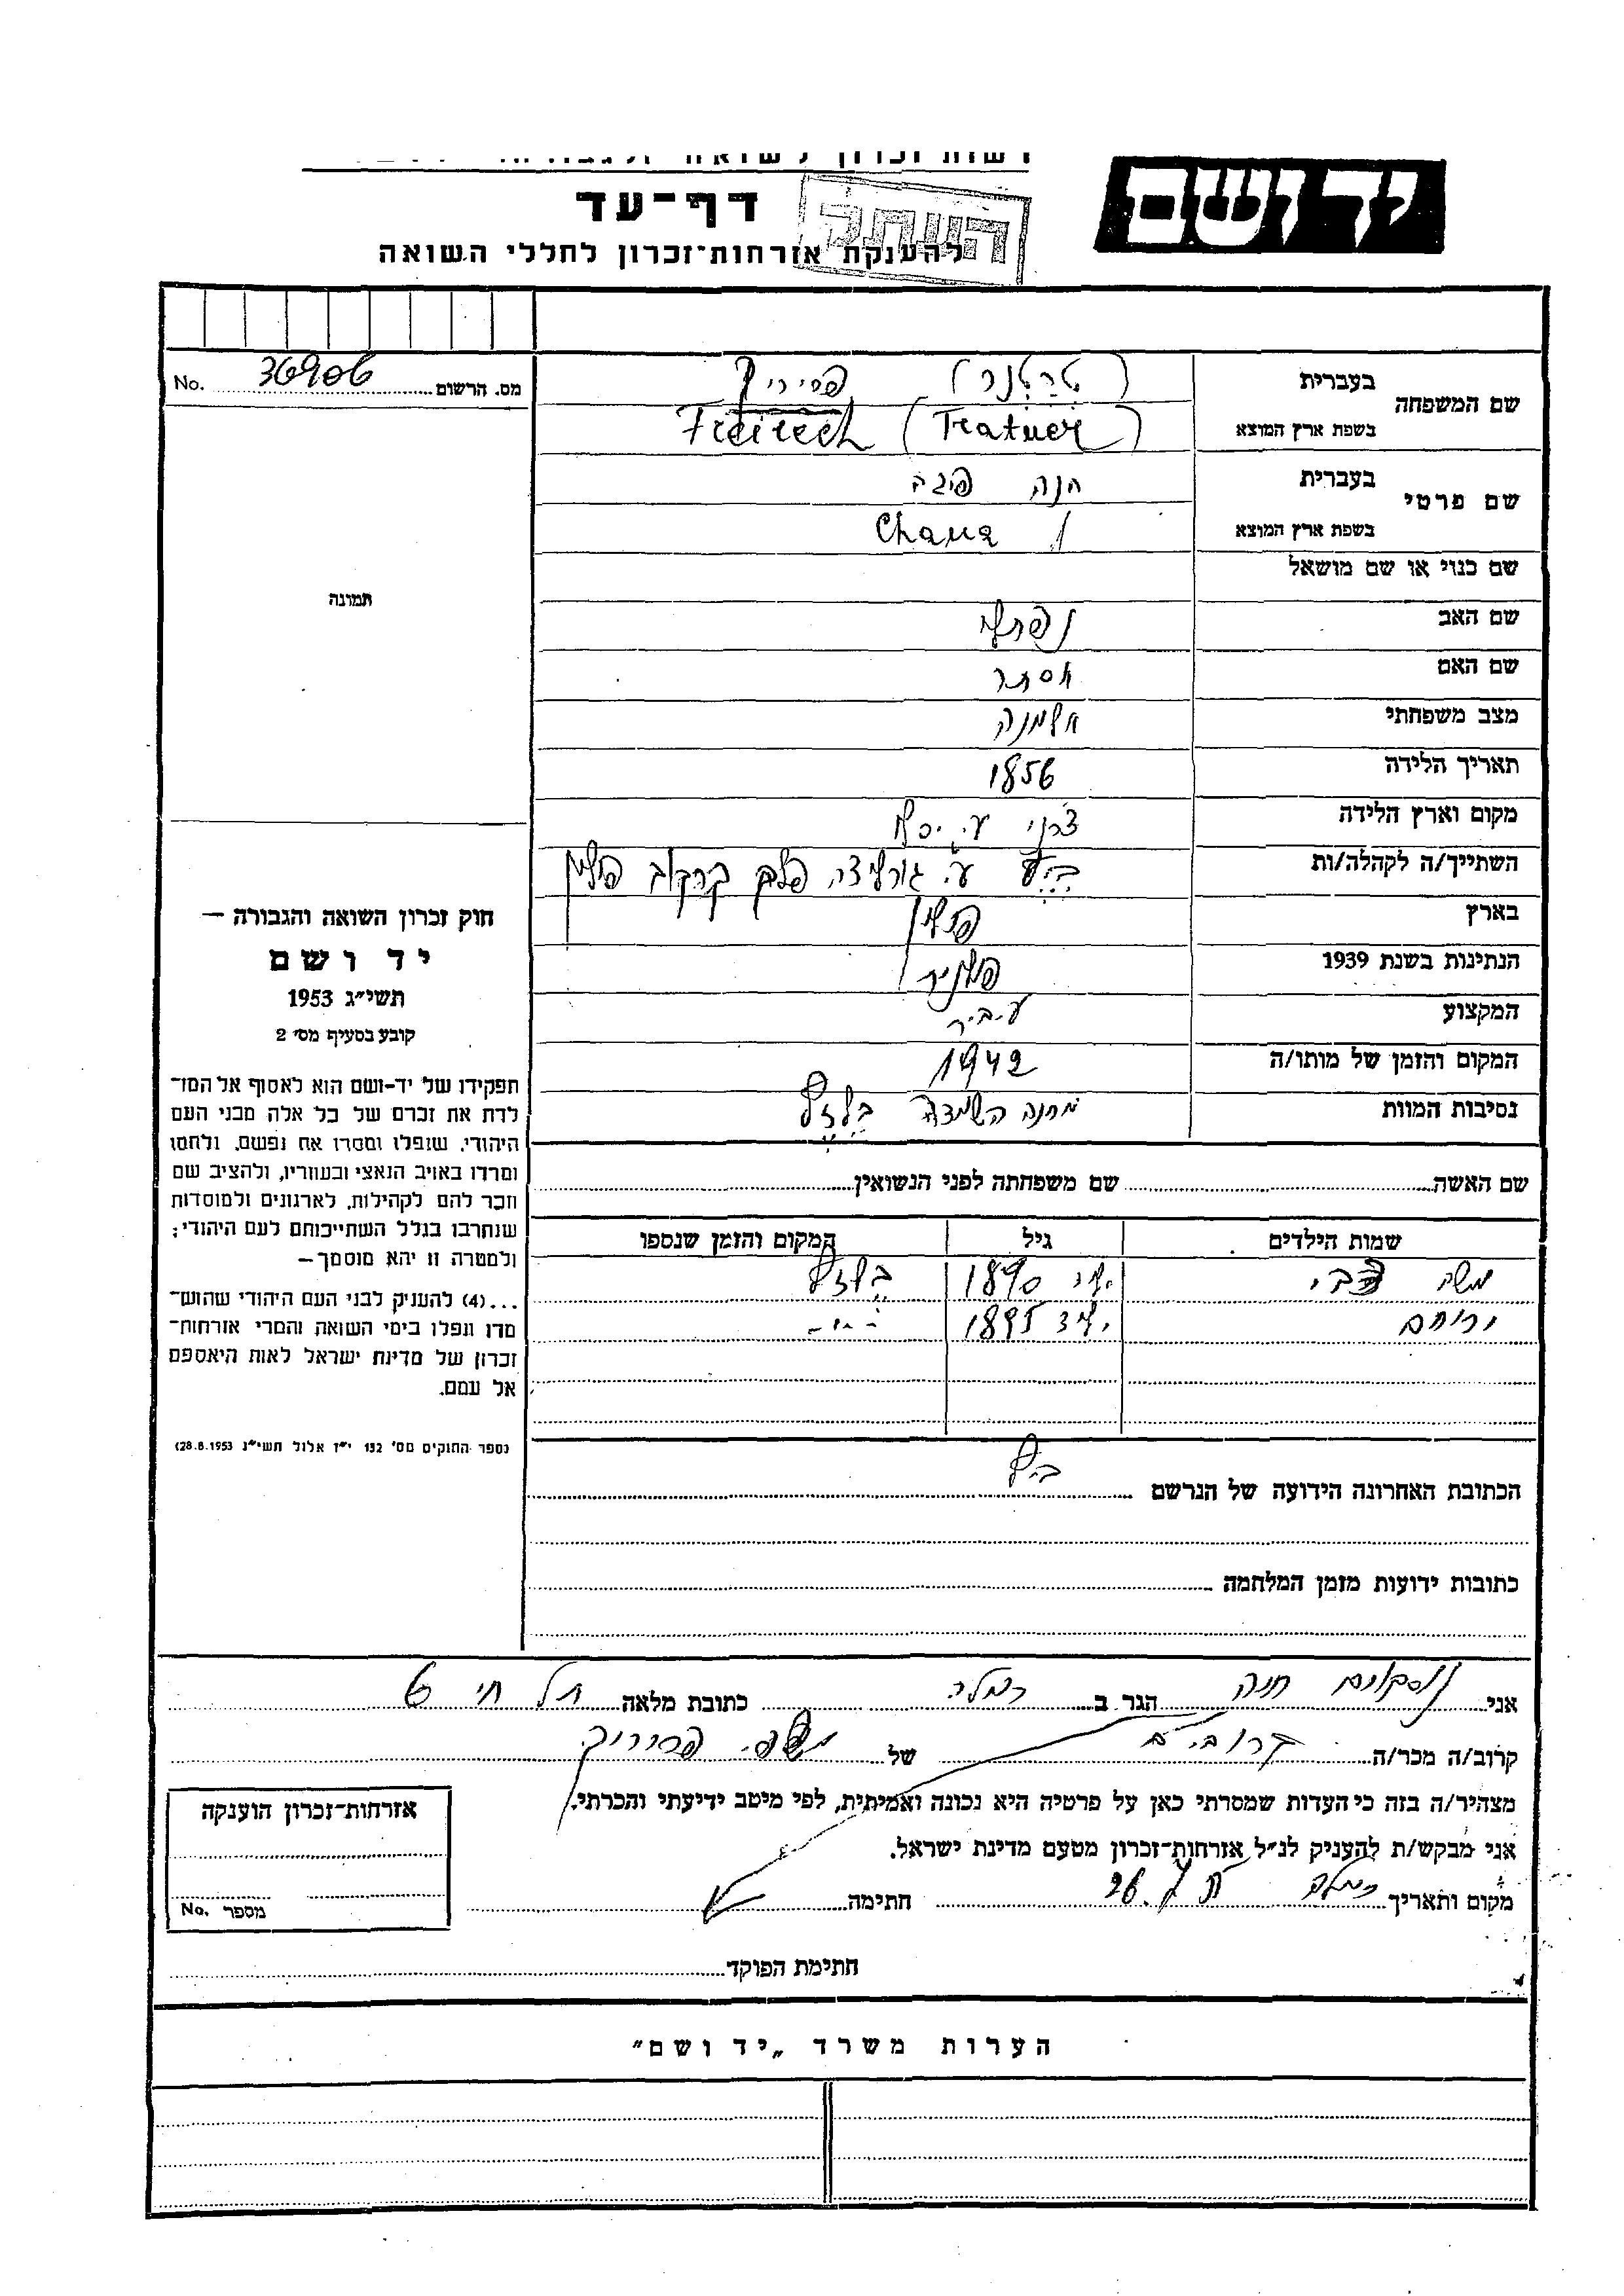 יד ושם
דף-עד
העתק
להענקת אזרחות-זכרון לחללי השואה
מס. הרשום 36906 No.
שם המשפחה
בעברית
פריירין (טרטנר)
בשפת ארץ המוצא
Freirech (Tratner)
שם פרטי
בעברית
חנה פיגה
בשפת ארץ המוצא
Chana
שם כנוי או שם מושאל
שם האב נפתלי
שם האם אסתר
מצב משפחתי אלמנה
תאריך הלידה 1856
מקום וארץ הלידה
השתייך/ה לקהלה/ות ע. גורליצה, פלך קרקוב פולין
בארץ פולין
הנתינות בשנת 1939 פולנית
המקצוע
המקום והזמן של מותו/ה 1942
נסיבות המוות מחנה השמדה בלזץ
שם האשה שם משפחתה לפני הנשואין
שמות הילדים גיל המקום והזמן שנספו
משה צבי 1890 בלזץ
ירוחם יליד 1895 - " -
הכתובת האחרונה הידועה של הנרשם
כתובות ידועות מזמן המלחמה
תמונה
חוק זכרון השואה והגבורה —
יד ושם
תשי"ג 1953
קובע בסעיף מס' 2
תפקידו של יד-ושם הוא לאסוף אל המו־
לדת את זכרם של כל אלה מבני העם
היהודי, שנפלו ומסרו את נפשם, ולחמו
ומרדו באויב הנאצי ובעוזריו, ולהציב שם
וזכר להם לקהילות, לארגונים ולמוסדות
שנחרבו בגלל השתייכותם לעם היהודי;
ולמטרה זו יהא מוסמך—
...(4) להענין לבני העם היהודי שהוש־
מדו ונפלו בימי השואה והמרי אזרחות־
זכרון של מדינת ישראל לאות היאספם
אל עמם.
(ספר החוקים מס' 132 י"ז אלול תשי"ג 28.8.1953)
אני חנה הגר ב רמלה כתובת מלאה תל חי 6
קרוב/ה מכר/ה של
מצהיר/ה בזה כי העדות שמסרתי כאן על פרטיה היא נכונה ואמיתית, לפי מיטב ידיעתי והכרתי.
אני מבקש/ת להעניק לנ"ל אזרחות-זכרון מטעם מדינת ישראל.
מקום ותאריך רמלה חתימה
חתימת הפוקד
אזרחות-זכרון הוענקה
מספר No.
הערות משרד „יד ושם"